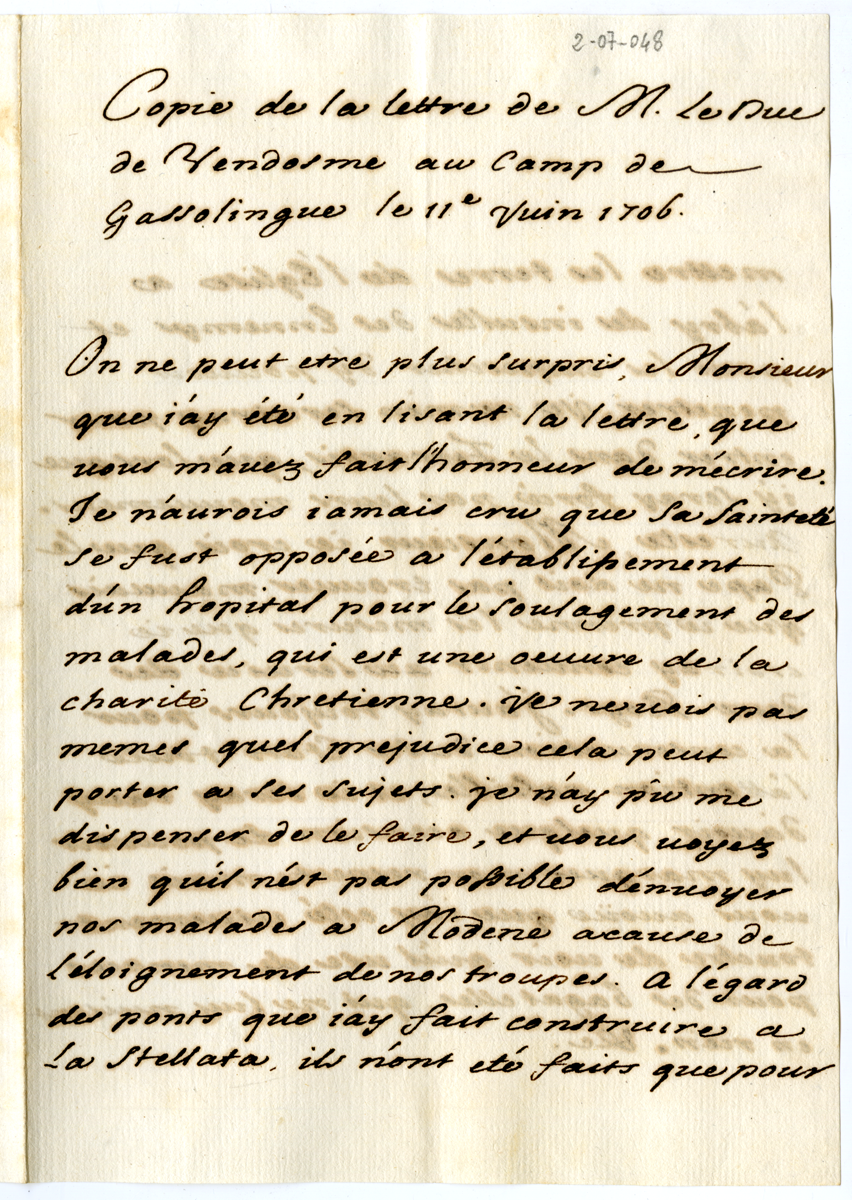 2-07-048
Copie de la lettre de M. Le Duc
de Vendosme au Camp de
Gassolingue le 11e Juin 1706.
On ne peut etre plus surpris, Monsieur
que i'áy été en lisant la lettre, que
vous m'auez fait l'honneur de m'écrire.
Je n'aurois iamais cru que Sa Sainteté
se fust opposée a l'établissement
d'ún hopital pour le soulagement des
malades, qui est une oeuure de la
charité Chretienne. Je ne uois pas
memes quel prejudice cela peut
porter a ses sujets. je n'ay pû me
dispenser de le faire, et uous uoyez
bien qu'il n'est pas possible d'enuoyer
nos malades a Modene acause de
l'éloignement de nos troupes. A l'égard
des ponts que i'áy fait construire a
La Stellata, ils n'ont eté faits que pour